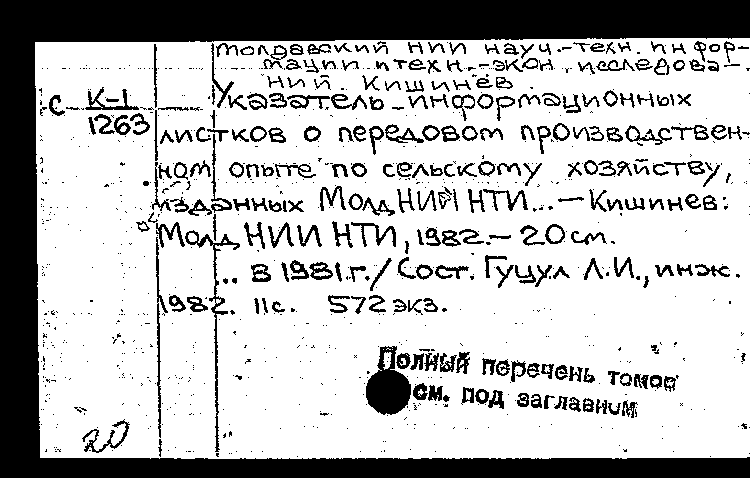 Молдавский НИИ науч.-техн. инфор-
мации и техн.-экон. исследова-
ний. Кишинев
С К-1
1263
Указатель информационных
листков о передовом производствен-
ном опыте по сельскому хозяйству,
изданных МолдНИИНТИ...—Кишинев:
МолдНИИНТИ, 1982.— 20 см.
... В 1981 г./Сост. Гуцул Л.И., инж.
1982. 11 с. 572 экз.
Полный перечень томов
см. под заглавием
20